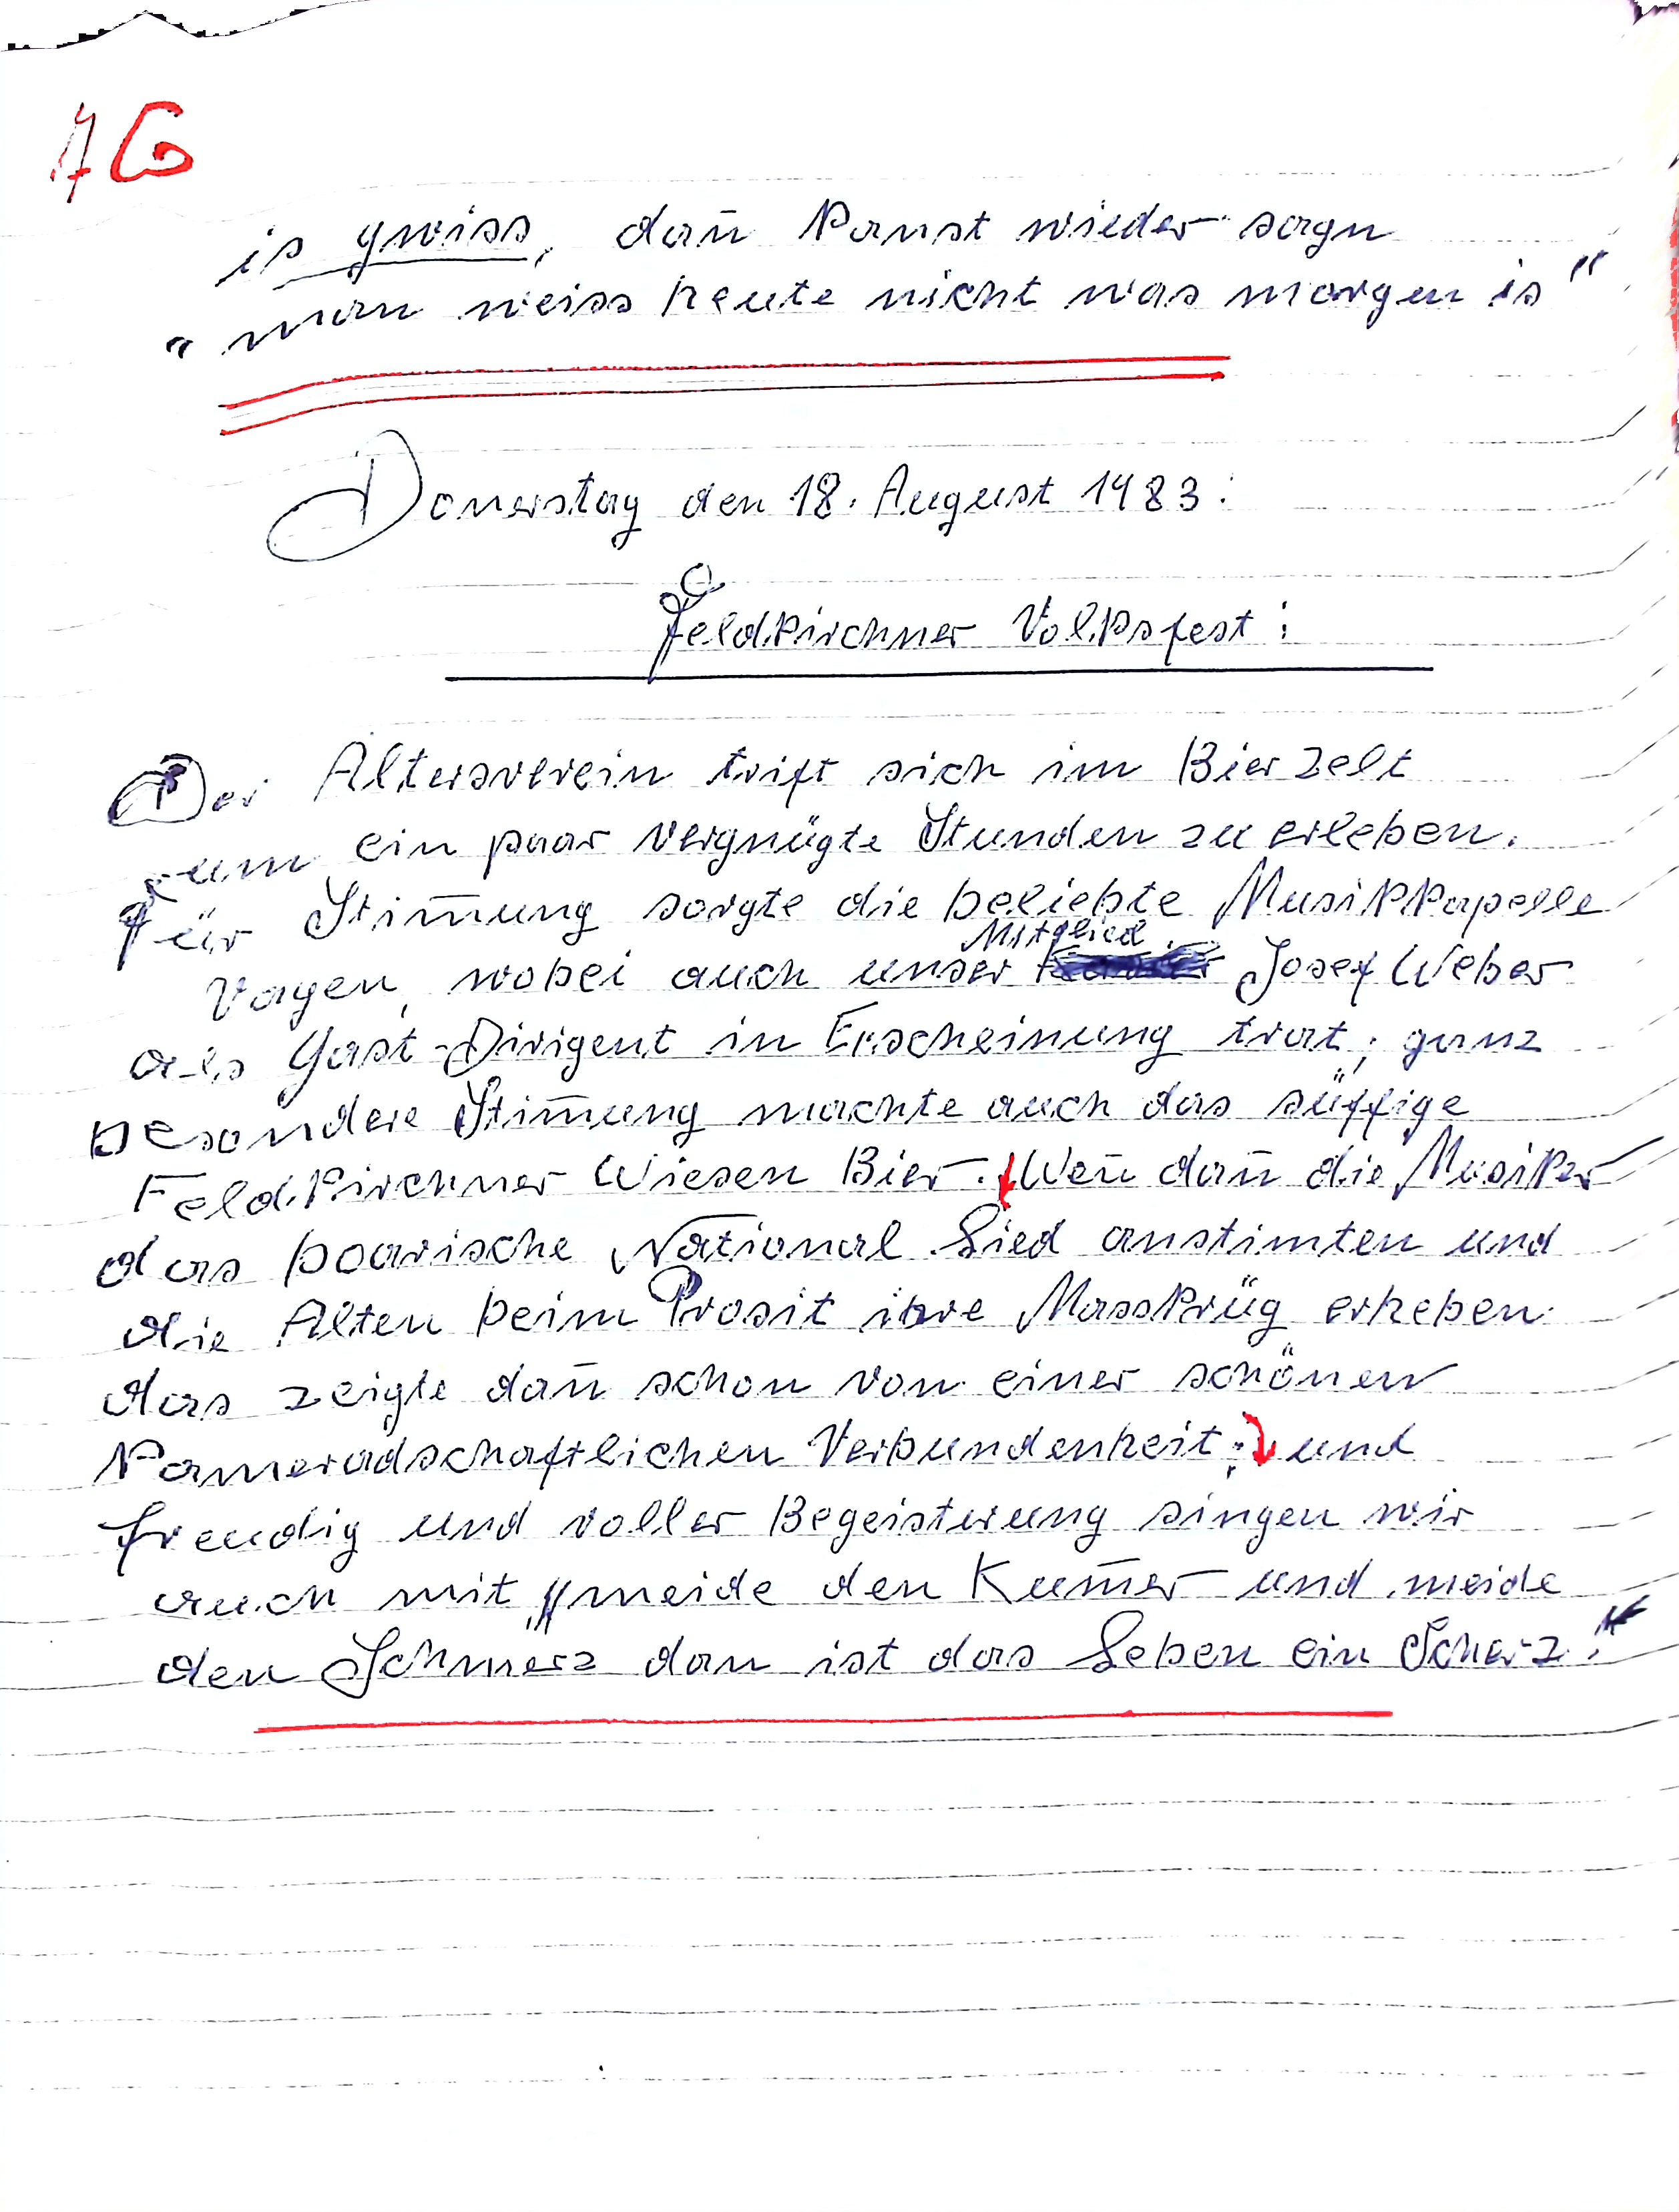 76
is gwiss, dan̄ kanst wieder sagn
„ man weiss heute nicht was morgen is "
Donerstag den 18. August 1983:
Feldkirchner Volksfest:
Der Altersverein trift sich im Bierzelt
um ein paar vergnügte Stunden zu erleben.
Für Stim̄ung sorgte die beliebte Musikkapelle
Mitglied
Vagen, wobei auch unser Josef Weber
als Gast-Dirigent in Erscheinung trat; ganz
besondere Stim̄ung machte auch das süffige
Feldkirchner Wiesen Bier. Wen̄ dan̄ die Musiker
das boarische National Lied anstimten und
die Alten beim Prosit ihre Masskrüg erheben
das zeigte dan̄ schon von einer schönen
kameradschaftlichen Verbundenheit; und
freudig und voller Begeisterung singen wir
auch mit „meide den Kum̄er und meide
den Schmerz dan ist das Leben ein Scherz."